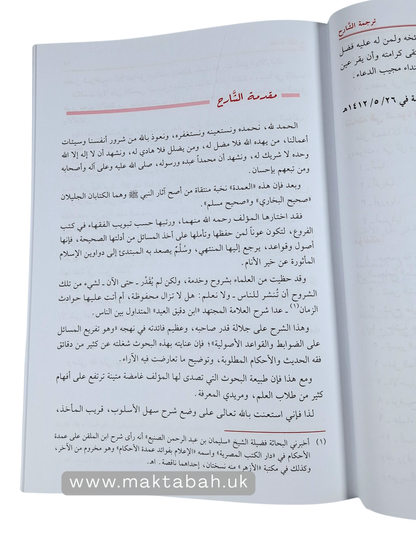 ترجمة الشارح
ـخه ولمن له عليه فضل
ـقى كرامته وأن يقر عين
ـنداء مجيب الدعاء.
ـة في ٢٦/ ٥/ ١٤١٢هـ
مقدمة الشَّارح
الحمد لله، نحمده ونستعينه ونستغفره، ونعوذ بالله من شرور أنفسنا وسيئات
أعمالنا، من يهده الله فلا مضل له، ومن يضلل فلا هادي له، ونشهد أن لا إله إلا الله
وحده لا شريك له، ونشهد أن محمداً عبده ورسوله، صلى الله عليه وعلى آله وأصحابه
ومن تبعهم بإحسان.
وبعد فإن هذه «العمدة» نخبة منتقاة من أصح آثار النبي ﷺ وهما الكتابان الجليلان
«صحيح البخاري» و«صحيح مسلم».
فقد اختارها المؤلف رحمه الله منهما، ورتبها حسب تبويب الفقهاء في كتب
الفروع، لتكون عوناً لمن حفظها وتأملها على أخذ المسائل من أدلتها الصحيحة، فإنها
أصول وقواعد، يرجع إليها المنتهي، وسُلَّم يصعد به المبتدئ إلى دواوين الإسلام
المأثورة عن خير الأنام.
وقد حظيت من العلماء بشروح وخدمة، ولكن لم يُقدَّر ـ حتى الآن ـ لشيء من تلك
الشروح أن تُنشر للناس ـ ولا نعلم: هل لا تزال محفوظة، أم أتت عليها حوادث
الزمان(١) ـ عدا شرح العلامة المجتهد «ابن دقيق العيد» المتداول بين الناس.
وهذا الشرح على جلالة قدر صاحبه، وعظيم فائدته في نهجه «وهو تفريع المسائل
على الضوابط والقواعد الأصولية»؛ فإن عنايته بهذه البحوث شغلته عن كثير من دقائق
فقه الحديث والأحكام المطلوبة، وتوضيح ما تعارضت فيه الآراء.
ومع هذا فإن طبيعة البحوث التي تصدى لها المؤلف غامضة متينة ترتفع على أفهام
كثير من طلاب العلم، ومريدي المعرفة.
لذا فإني استعنت بالله تعالى على وضع شرح سهل الأسلوب، قريب المأخذ،
(١) أخبرني البحاثة فضيلة الشيخ «سليمان بن عبد الرحمن الصنيع» أنه رأى شرح ابن الملقن على عمدة
الأحكام في «دار الكتب المصرية» واسمه «الإعلام بفوائد عمدة الأحكام» وهو مخروم من الآخر،
وكذلك في مكتبة «الأزهر» منه نسختان، إحداهما ناقصة. اهـ.
www.maktabah.uk